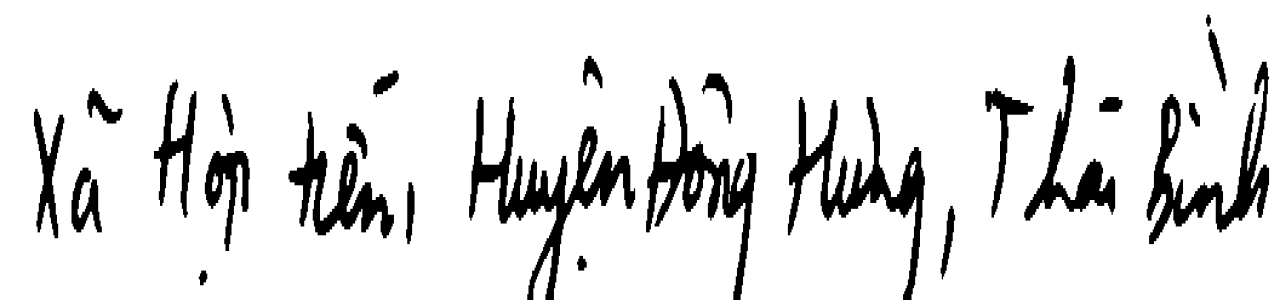 Xã Hợp tiến, Huyện Đông Hưng, Thái Bình